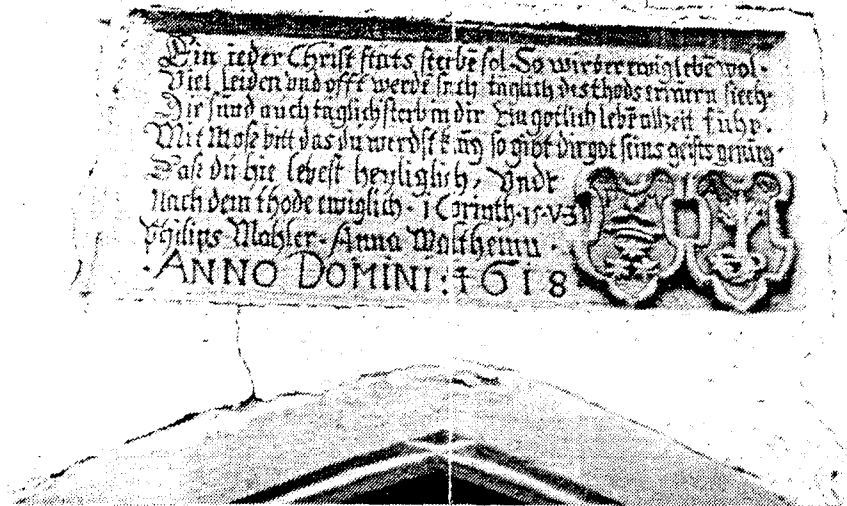 Ein ieder Christ stäts sterbē sol. So wir der ewig lebē wol.
Viel leiden vnd offt werdē täglich des thods erinern
Die sünd auch taglich sterb in dir Ein gotlich lebē allzeit führ.
Mit Mose bitt das du werdst so gibt dir got seins geists genüg.
Daß du hie lebest heyliglich, Vndt
Nach dem thode ewiglich. 1 Corinth. 15. V. 31
Philips Mahler. Anna
·ANNO DOMINI: 1618